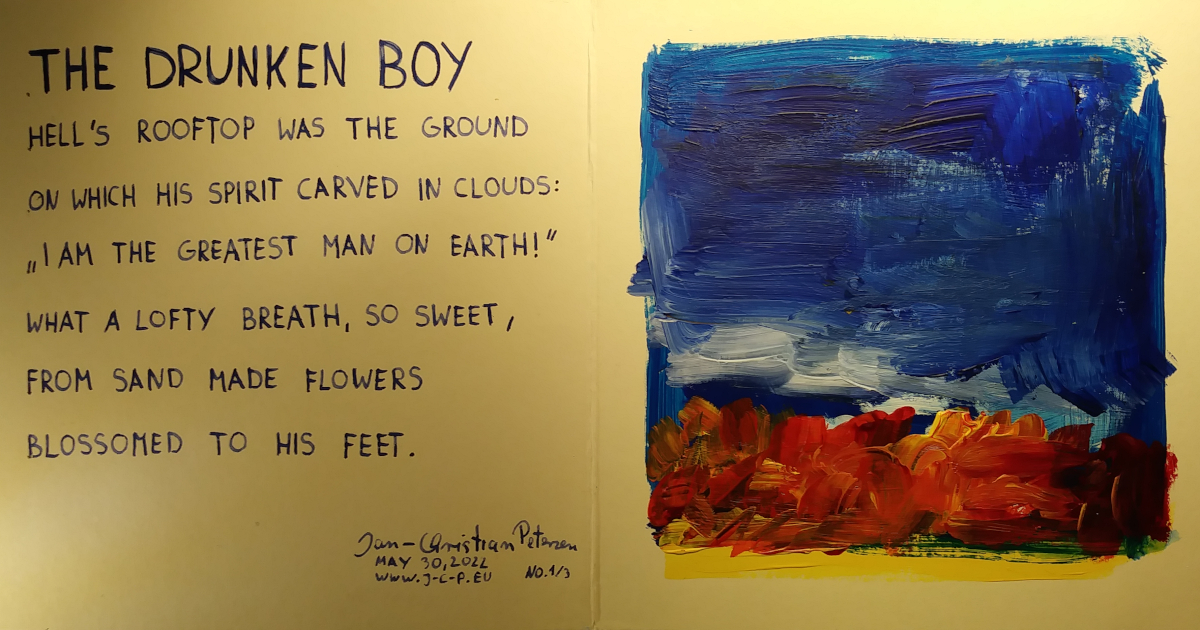 THE DRUNKEN BOY
HELL'S ROOFTOP WAS THE GROUND
ON WHICH HIS SPIRIT CARVED IN CLOUDS:
„I AM THE GREATEST MAN ON EARTH!“
WHAT A LOFTY BREATH, SO SWEET,
FROM SAND MADE FLOWERS
BLOSSOMED TO HIS FEET.
Jan-Christian Petersen
MAY 30, 2022
WWW.J-C-P.EU NO. 1/3